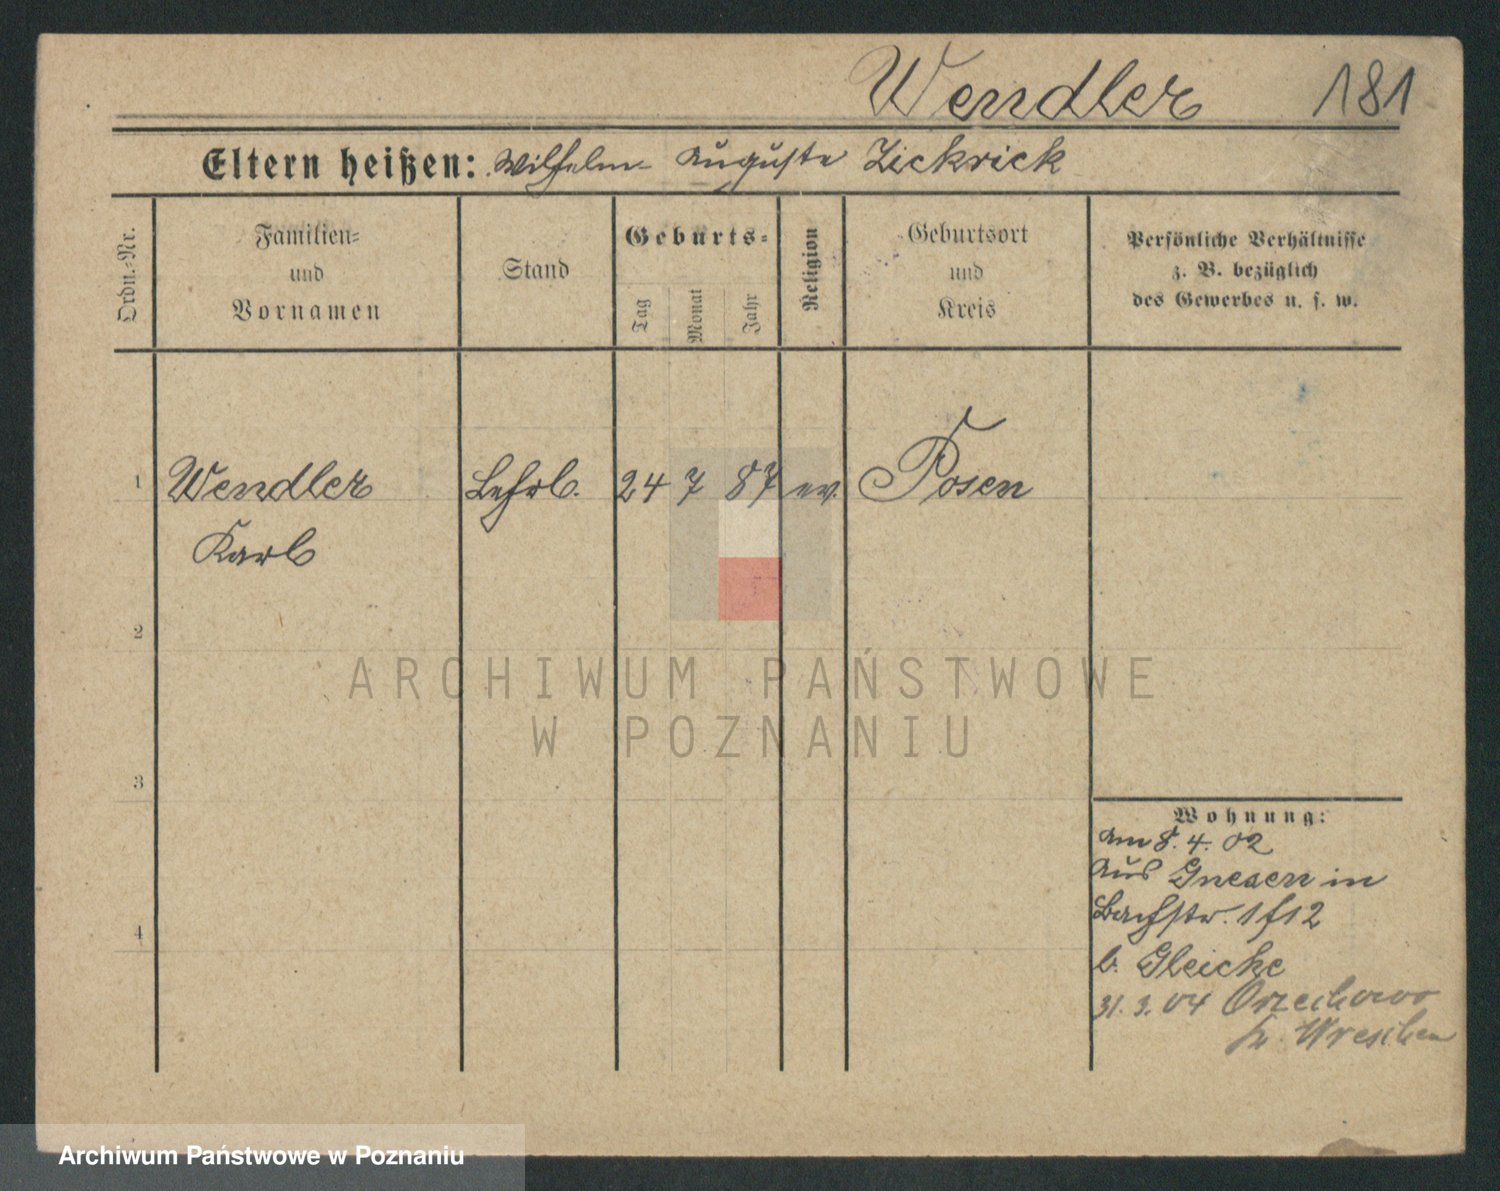 Wendler 181
Eltern heißen: Wilhelm Auguste Zickrick
Ordn.-Nr.
Familien-
und
Vornamen
Stand
Geburts-
Tag
Monat
Jahr
Religion
Geburtsort
und
Kreis
Persönliche Verhältnisse
z. B. bezüglich
des Gewerbes u. s. w.
1 Wendler Lehrl. 24 7 87 ev. Posen
Karl
2
3
4
Wohnung:
am 8. 4. 02
aus Gnesen in
Bachstr. 1 f 12
b. Gleicke
31. 3. 04 Orzechowo
Kr. Wreschen
ARCHIWUM PAŃSTWOWE
W POZNANIU
Archiwum Państwowe w Poznaniu